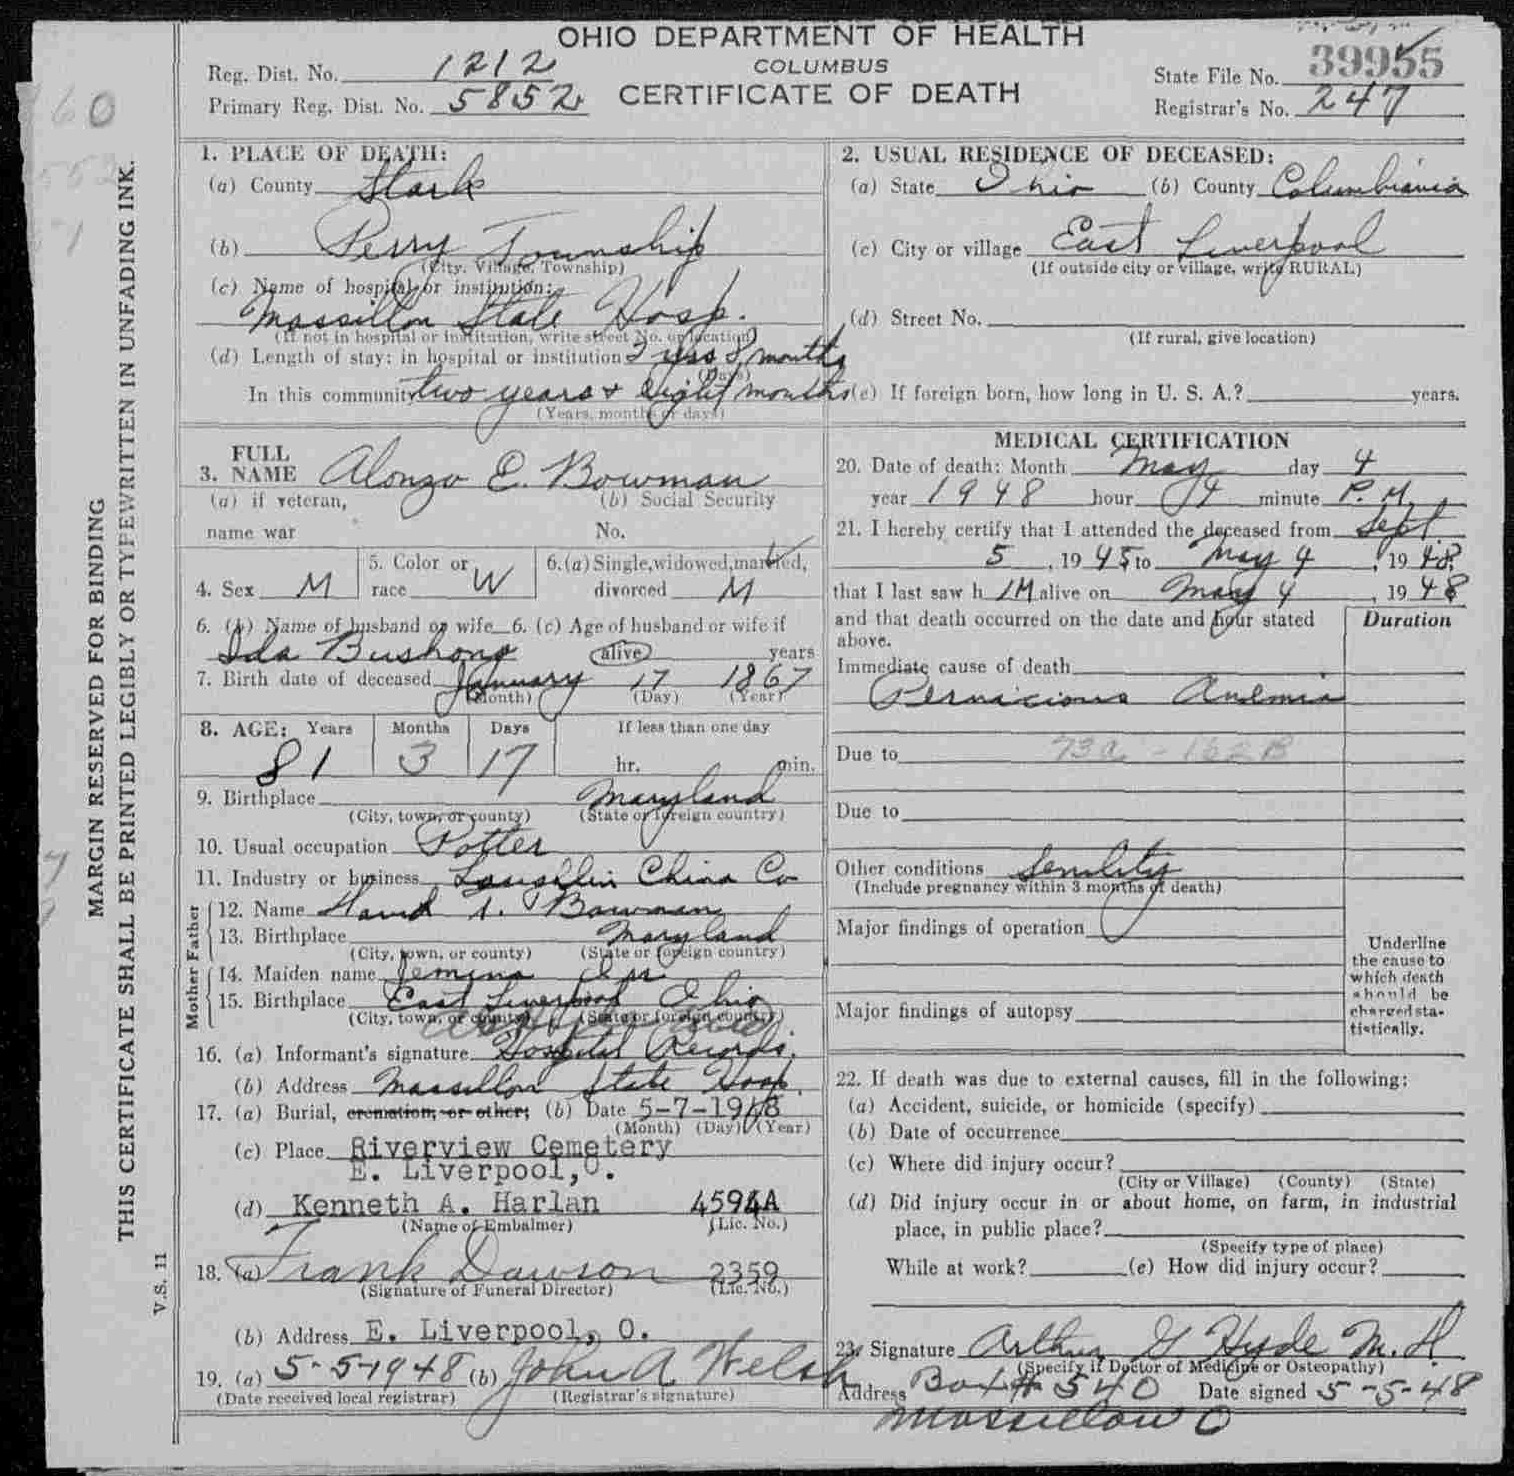 OHIO DEPARTMENT OF HEALTH
COLUMBUS
CERTIFICATE OF DEATH
Reg. Dist. No. 1212
Primary Reg. Dist. No. 5852
State File No. 39955
Registrar's No. 247
60
MARGIN RESERVED FOR BINDING
THIS CERTIFICATE SHALL BE PRINTED LEGIBLY OR TYPEWRITTEN IN UNFADING INK.
V.S. 11
1. PLACE OF DEATH:
(a) County Stark
(b) Perry Township
(City, Village, Township)
(c) Name of hospital or institution:
Massillon State Hosp.
(If not in hospital or institution, write street No. or location)
(d) Length of stay: in hospital or institution 2 yrs 8 months
(Days)
In this community two years + eight months
(Years, months or days)
2. USUAL RESIDENCE OF DECEASED:
(a) State Ohio (b) County Columbiania
(c) City or village East Liverpool
(If outside city or village, write RURAL)
(d) Street No.
(If rural, give location)
(e) If foreign born, how long in U. S. A.? years.
3. FULL NAME Alonzo E. Bowman
(a) if veteran, name war
(b) Social Security No.
4. Sex M
5. Color or race W
6. (a) Single, widowed, married, divorced M
6. (b) Name of husband or wife Ida Bushong
6. (c) Age of husband or wife if alive years
7. Birth date of deceased January 17 1867
(Month) (Day) (Year)
8. AGE: Years 81 Months 3 Days 17 If less than one day hr. min.
9. Birthplace Maryland
(City, town, or county) (State or foreign country)
10. Usual occupation Potter
11. Industry or business Laughlin China Co
Father
12. Name David Bowman
13. Birthplace Maryland
(City, town, or county) (State or foreign country)
Mother
14. Maiden name Jemina
15. Birthplace East Liverpool Ohio
(City, town, or county) (State or foreign country)
16. (a) Informant's signature Hospital Records.
(b) Address Massillon State Hosp.
17. (a) Burial, cremation, or other; (b) Date 5-7-1948
(Month) (Day) (Year)
(c) Place Riverview Cemetery
E. Liverpool, O.
(d) Kenneth A. Harlan 4594A
(Name of Embalmer) (Lic. No.)
18. (a) Frank Dawson 2359
(Signature of Funeral Director) (Lic. No.)
(b) Address E. Liverpool, O.
19. (a) 5-5-1948 (b) John A Welsh
(Date received local registrar) (Registrar's signature)
MEDICAL CERTIFICATION
20. Date of death: Month May day 4
year 1948 hour 4 minute P.M.
21. I hereby certify that I attended the deceased from Sept.
5, 1945 to May 4, 1948.
that I last saw h IM alive on May 4, 1948
and that death occurred on the date and hour stated above.
Duration
Immediate cause of death
Pernicious Anemia
Due to 73a - 162B
Due to
Other conditions Senility
(Include pregnancy within 3 months of death)
Major findings of operation
Major findings of autopsy
Underline the cause to which death should be charged statistically.
22. If death was due to external causes, fill in the following:
(a) Accident, suicide, or homicide (specify)
(b) Date of occurrence
(c) Where did injury occur?
(City or Village) (County) (State)
(d) Did injury occur in or about home, on farm, in industrial
place, in public place?
(Specify type of place)
While at work? (e) How did injury occur?
23. Signature Arthur G Hyde M.D.
(Specify if Doctor of Medicine or Osteopathy)
Address Box # 540 Date signed 5-5-48
Massillon O